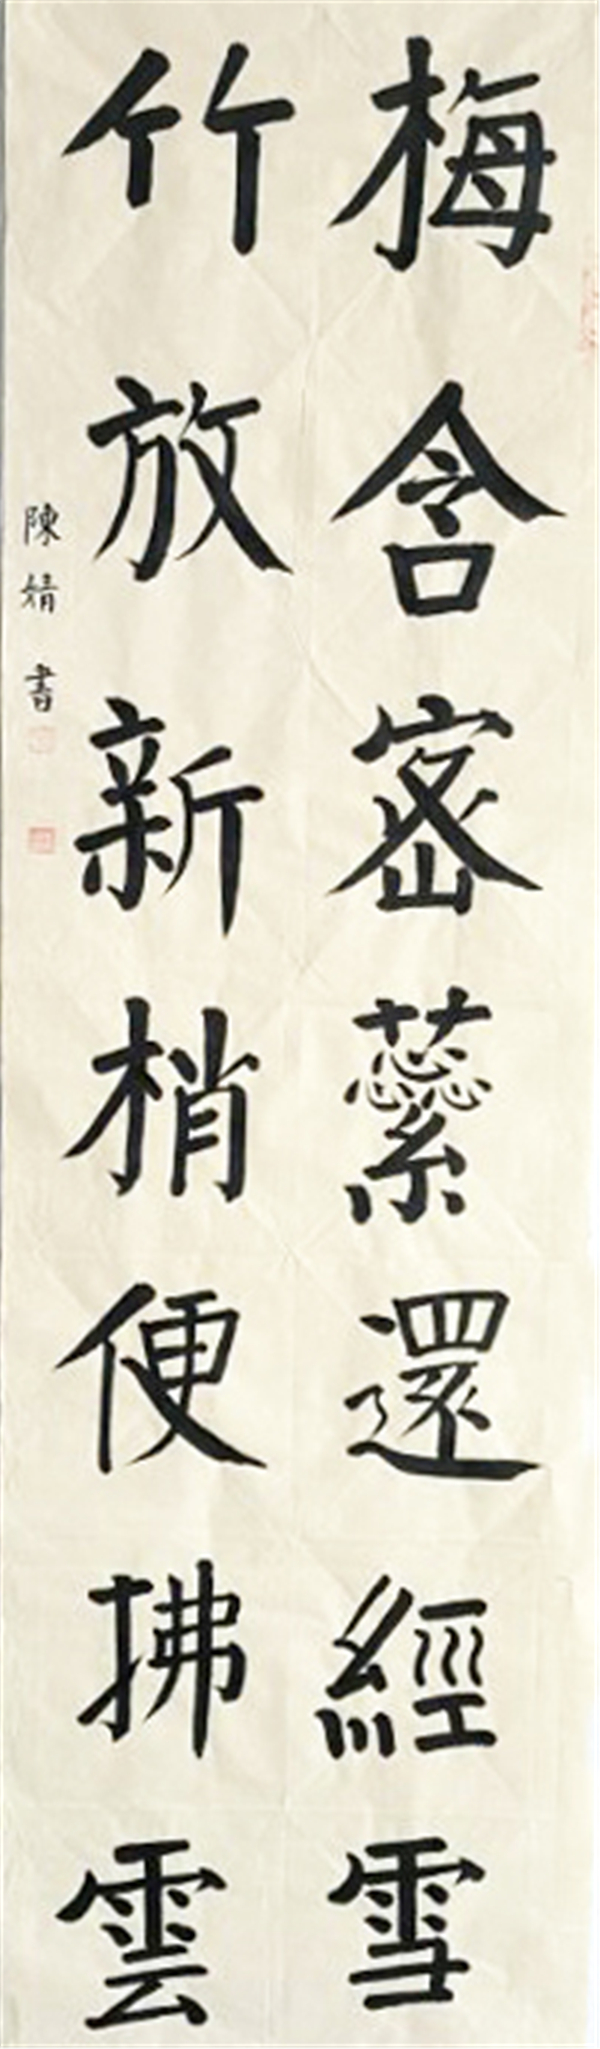 梅含密蘂還經雪
竹放新梢便拂雲
陳婧書